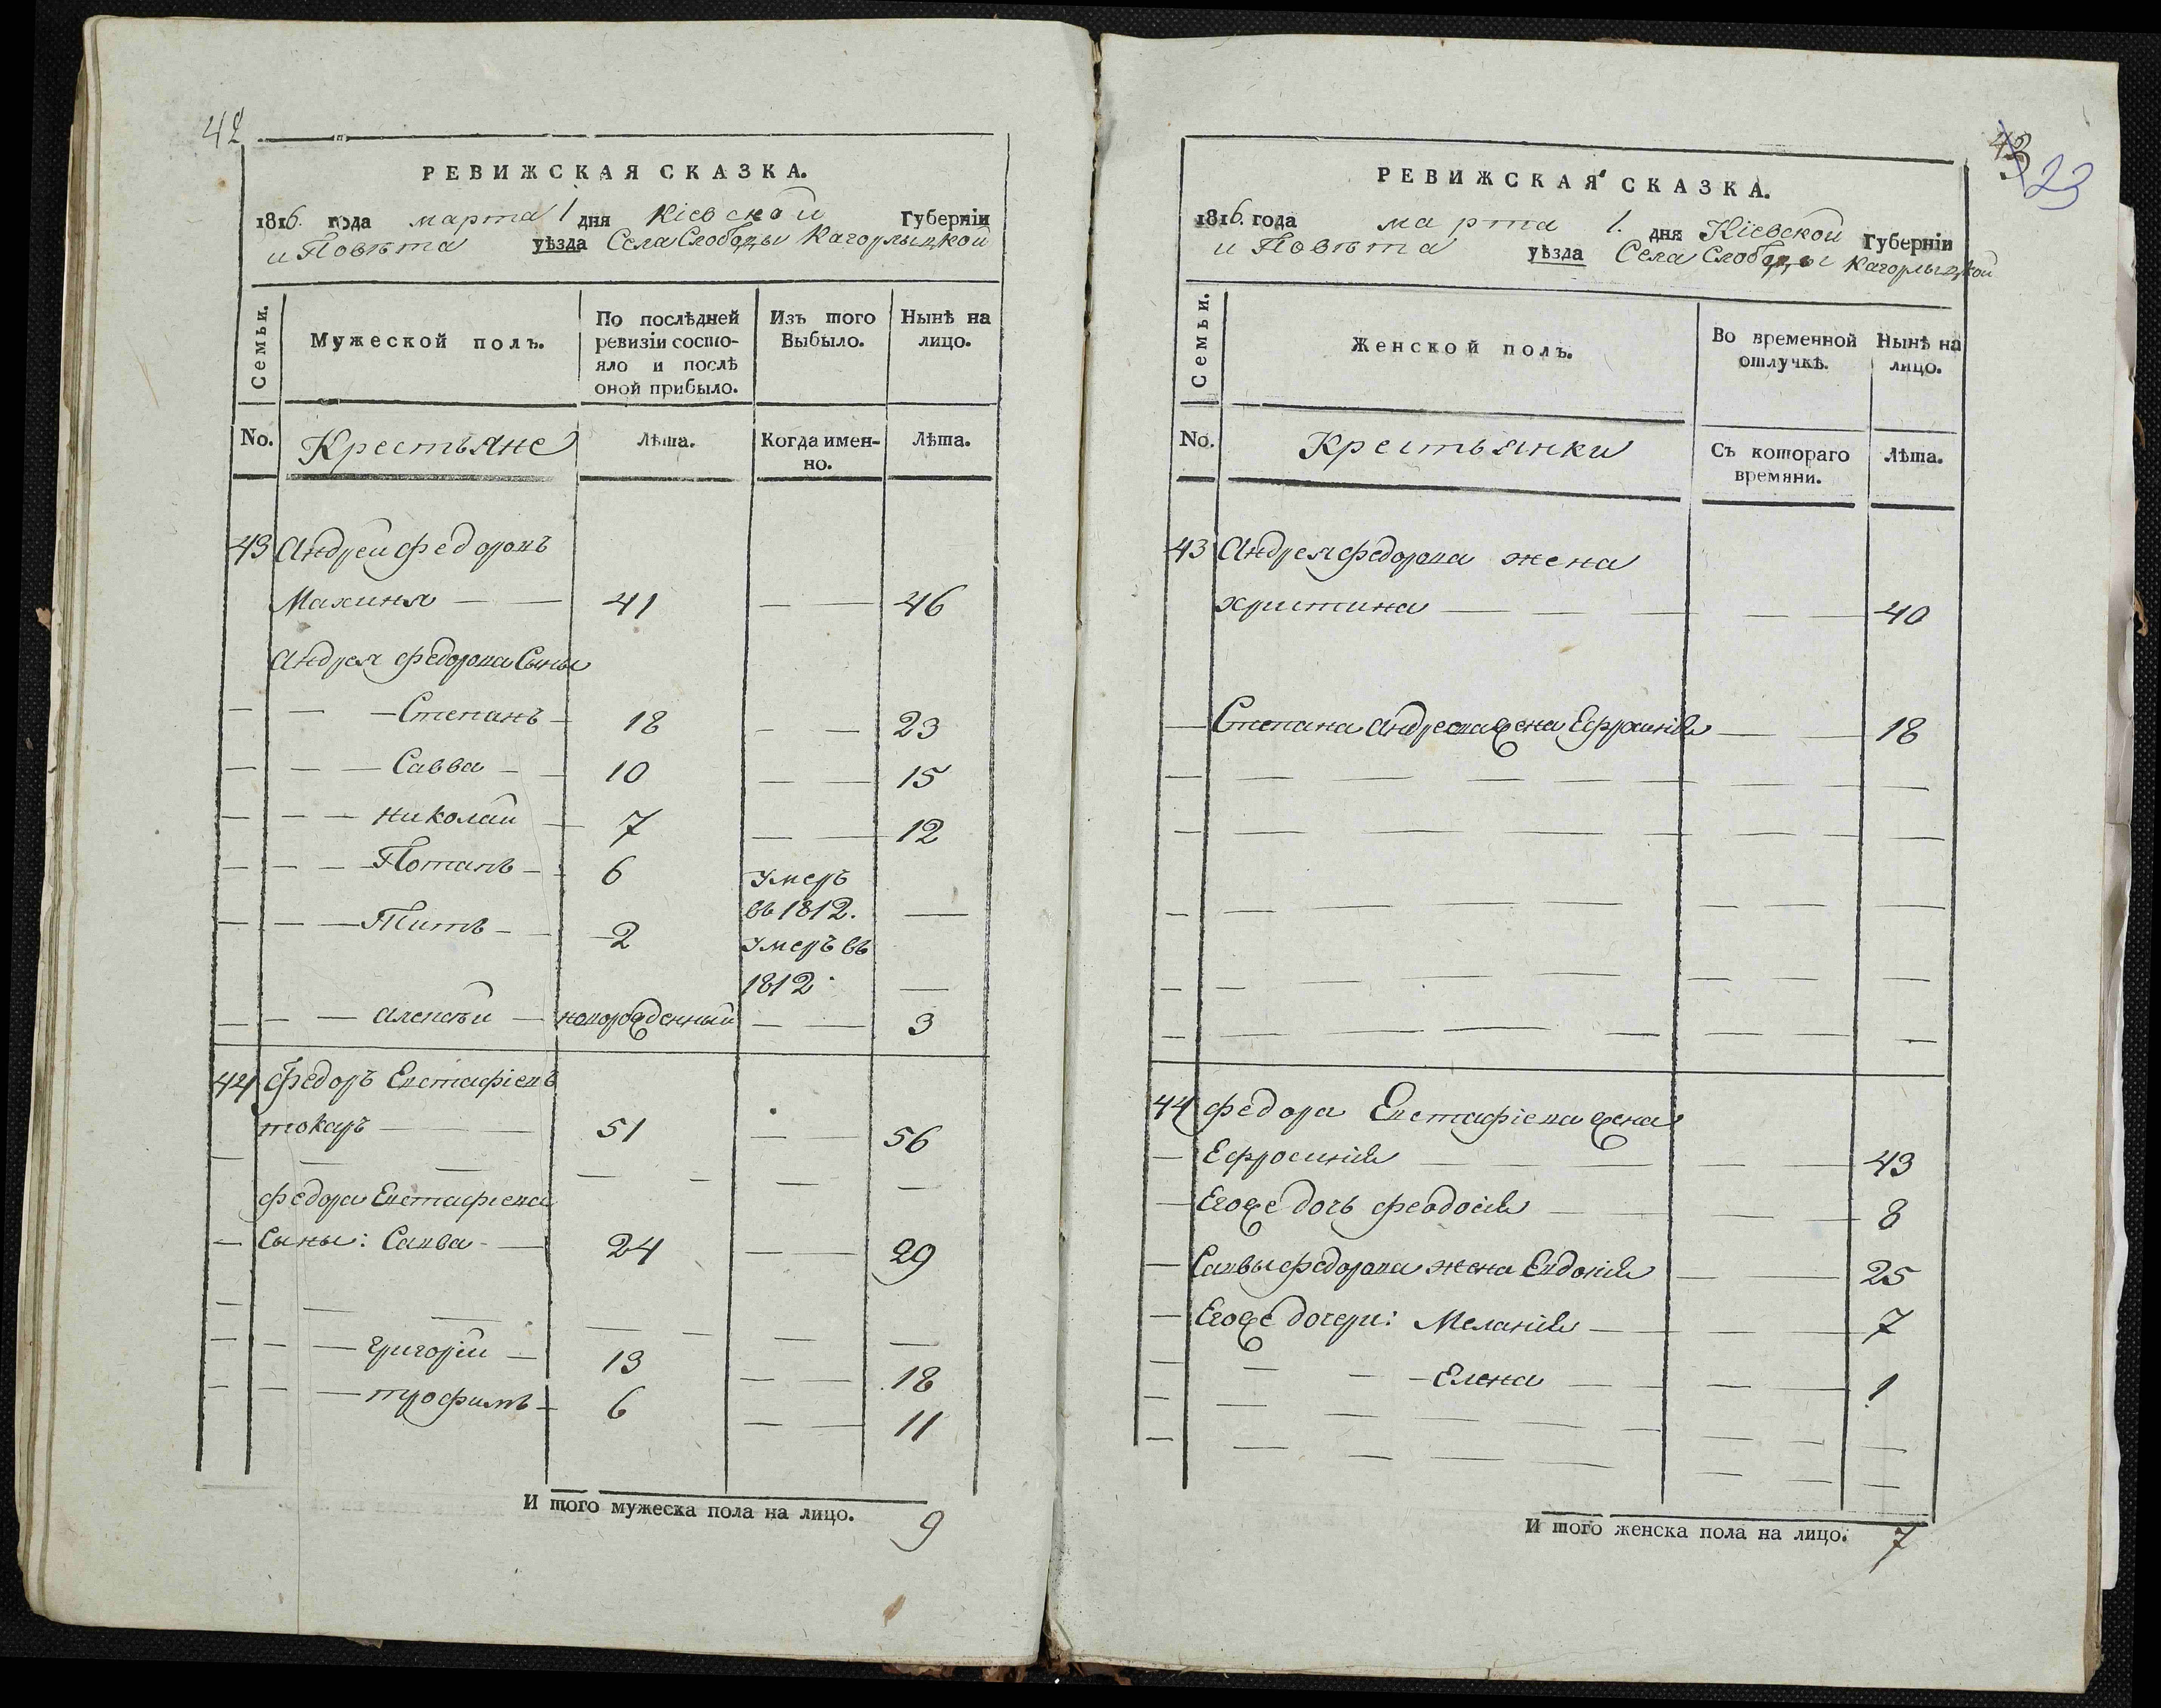 42
РЕВИЖСКАЯ СКАЗКА.
1816. года марта 1 дня Кіевской Губерніи
и Повѣта уѣзда Села Слободы Кагорлыцкой
Семьи.
Мужеской полъ.
По послѣдней ревизіи состо-
яло и послѣ
оной прибыло.
Изъ того
Выбыло.
Нынѣ на
лицо.
No. Крестьяне
Лѣта.
Когда имен-
но.
Лѣта.
43 Андрей Федоровъ
Махиня — — 41 — — 46
Андрея Федорова Сыны
— — — Степанъ — 18 — — 23
— — — Савва — — 10 — — 15
— — — Николай — 7 — — 12
— — — Потапъ — 6 умеръ
въ 1812. —
— — — Титъ — — 2 умеръ въ
1812 —
— — — Алексѣй — новорожденный — — 3
44 Федоръ Евстафіевъ
токаръ — — — 51 — — 56
Федора Евстафіева
— Сыны: Савва — — 24 — — 29
— — — Григорій — 13 — — 18
— — — трофимъ — 6 — — 11
И того мужеска пола на лицо. 9
43 23
РЕВИЖСКАЯ СКАЗКА.
1816. года марта 1. дня Кіевской Губерніи
и Повѣта уѣзда Села Слободы Кагорлыцкой
Семьи.
Женской полъ.
Во временной
отлучкѣ.
Нынѣ на
лицо.
No. Крестьянки
Съ котораго
времяни.
Лѣта.
43 Андрея Федорова жена
христина — — — — — 40
— Степана Андреева жена Ефросинія — — 18
44 Федора Евстафіева жена
— Ефросинія — — — — — 43
— Егоже дочь Феодосія — — — — 8
— Саввы Федорова жена Евдокія — — 25
— Егоже дочери: Меланія — — — — 7
— — — Елена — — — — 1
И того женска пола на лицо. 7